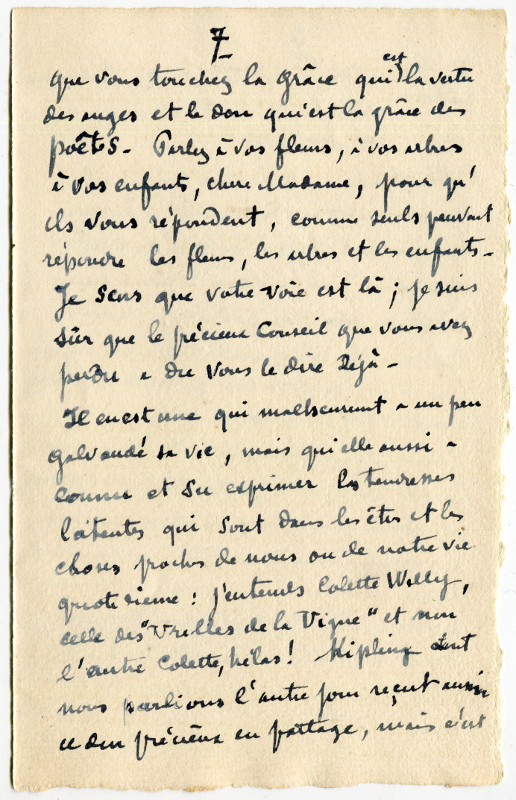 7
que vous touchez la grâce qui est la vertu
des anges et le don qu'est la grâce des
poètes - Parlez à vos fleurs, à vos arbres
à vos enfants, chère Madame, pour qu'
ils vous répondent, comme seuls peuvent
répondre les fleurs, les arbres et les enfants -
Je sens que votre voie est là ; je suis
sûr que le précieux Conseil que vous avez
perdu a du vous le dire Déjà -
Il en est une qui malheureusement a un peu
galvaudé sa vie, mais qui elle aussi a
connu et su exprimer les tendresses
latentes qui sont dans les êtres et les
choses proches de nous ou de notre vie
quotidienne : j'entends Colette Willy,
celle des "Vrilles de la Vigne" et non
l'autre Colette, hélas ! Kipling dont
nous parlions l'autre jour reçut aussi
ce don précieux en partage, mais c'est